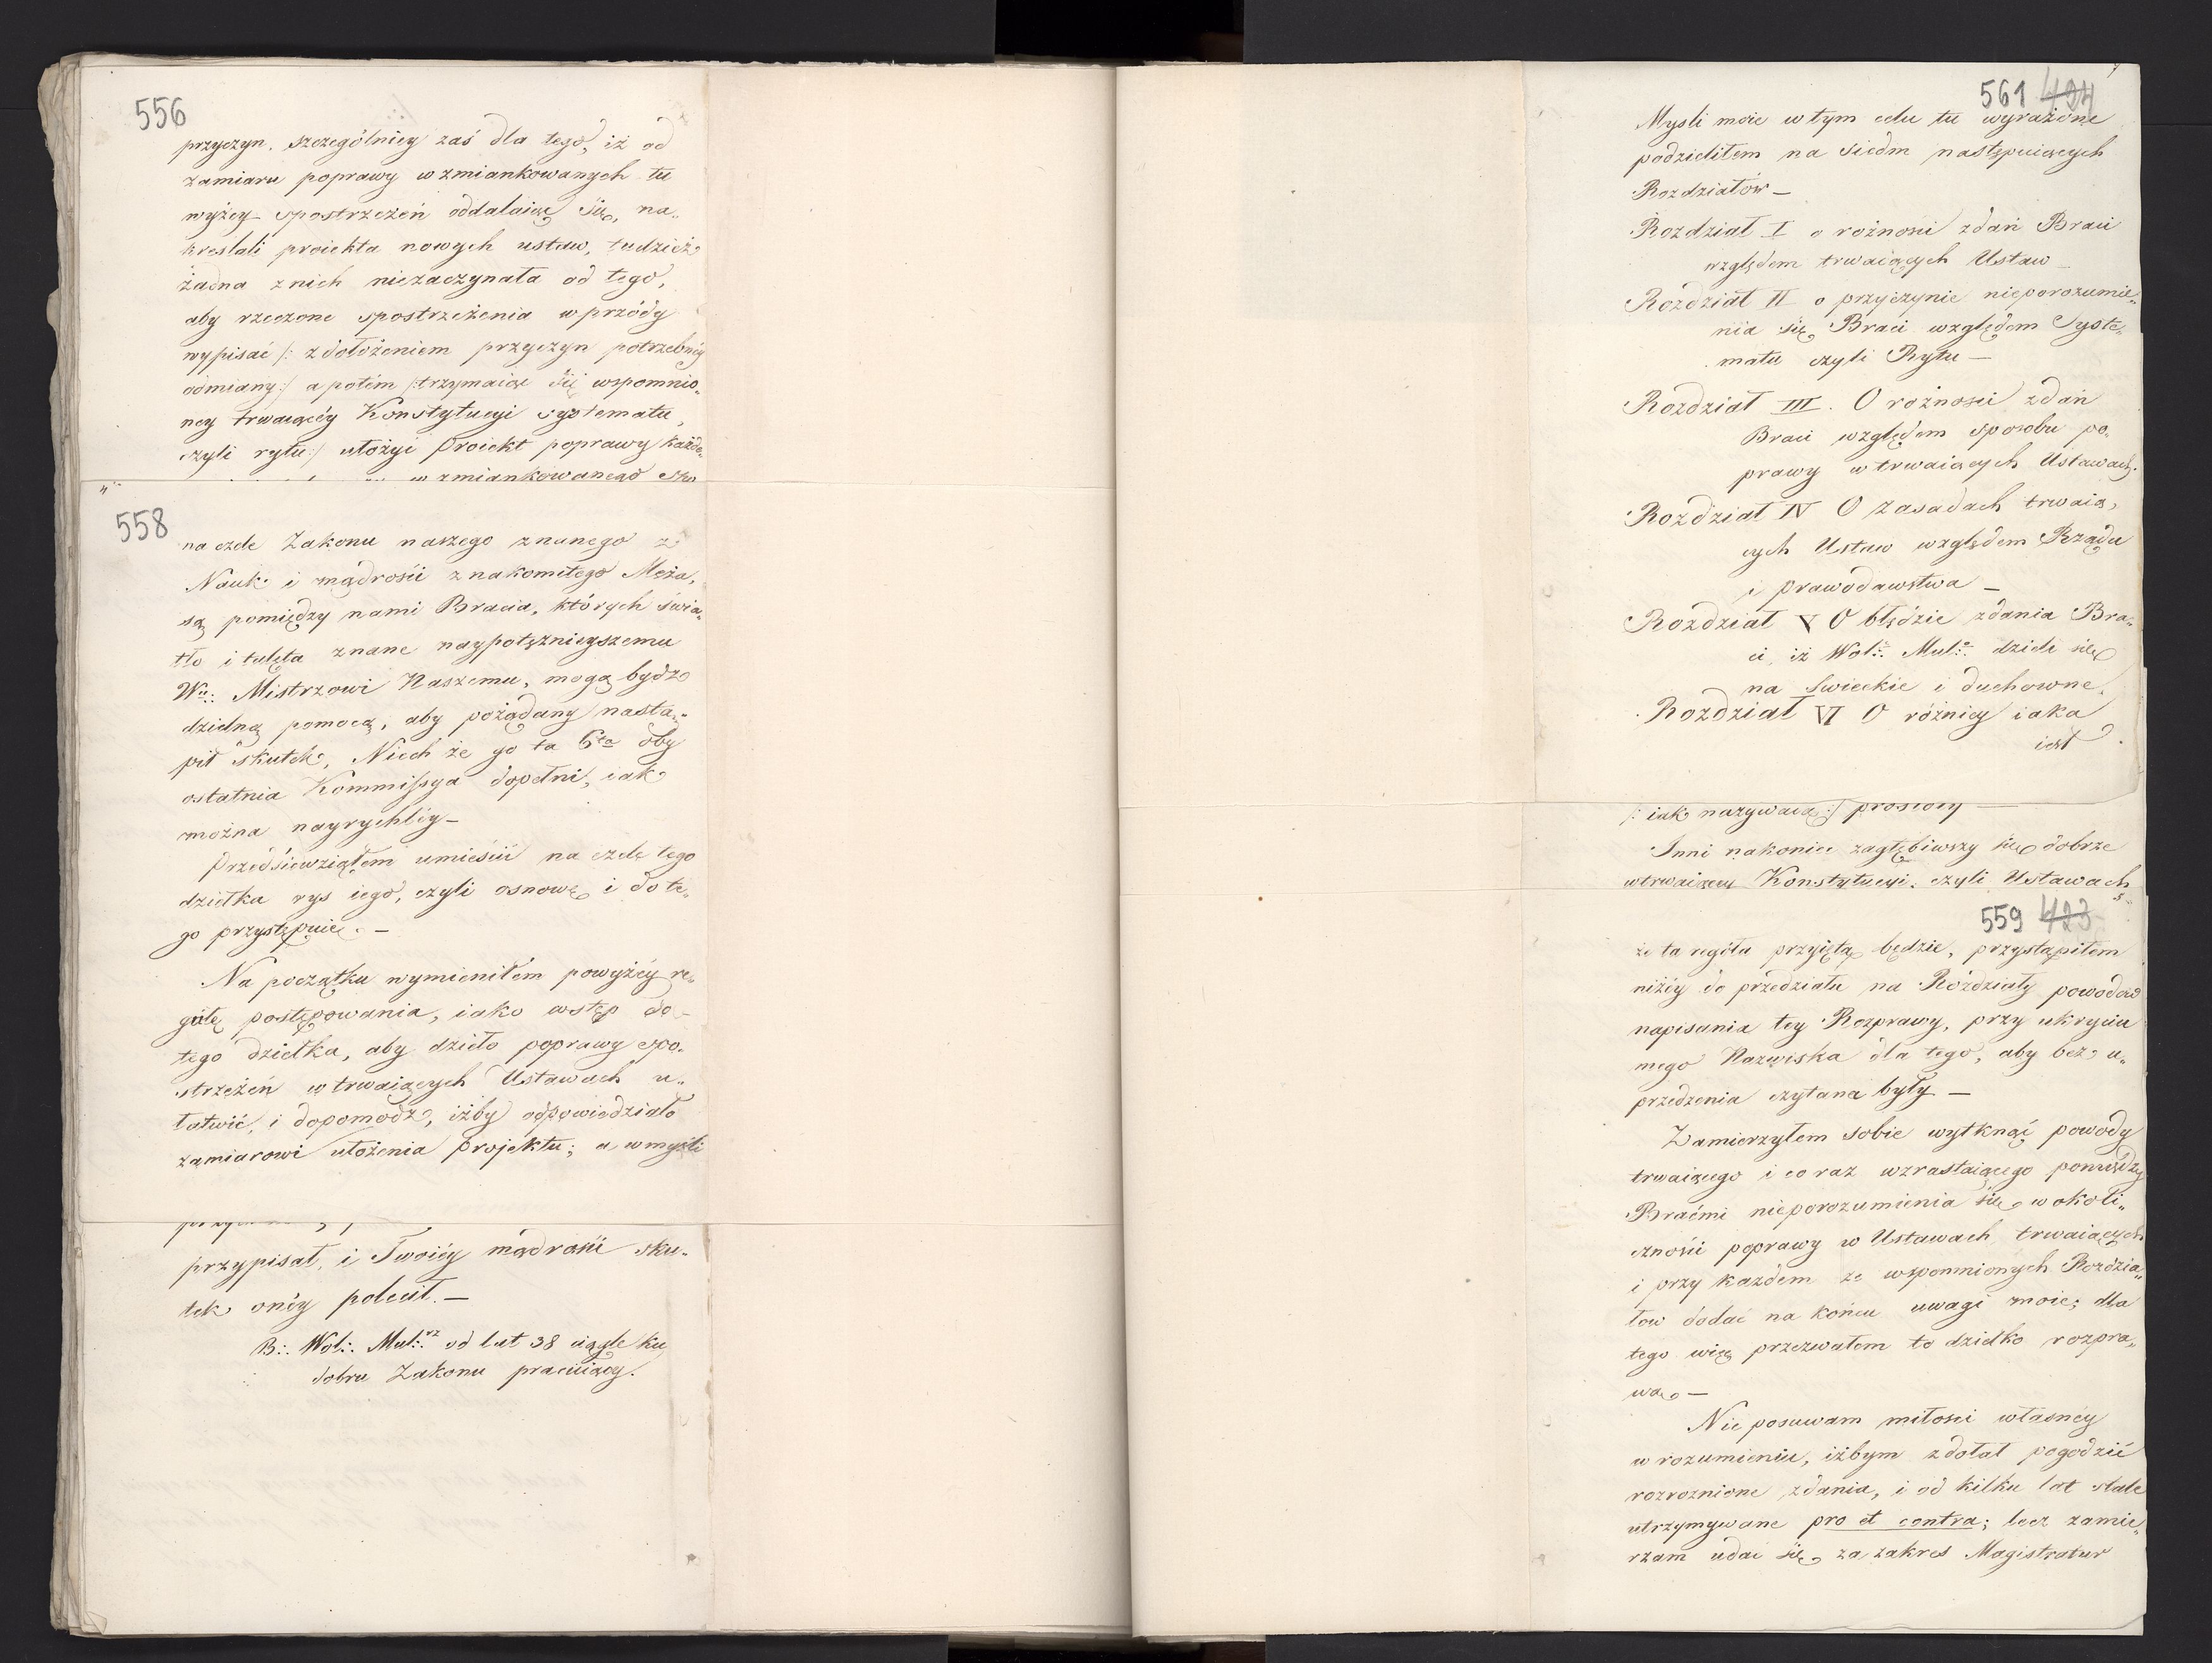 556
przyczyn, szczególniey zaś dla tego, iż od
zamiaru poprawy wzmiankowanych tu
wyżey spostrzeżeń oddalaiąc się, na„
kreslali proiekta nowych ustaw, tudzież
żadna z nich niezaczynała od tego,
aby rzeczone spostrzeżenia wprzódy
wypisać /: z dołożeniem przyczyn potrzebnéy
odmiany :/ a potém /: trzymaiąc się wspomnio„
ney trwaiącéy Konstytucyi systematu,
czyli rytu :/ ułożyć Proiekt poprawy każde„
wzmiankowanego
558
na czele Zakonu naszego znanego z
Nauk i mądrości znakomitego Męża,
są pomiędzy nami Bracia, których świa„
tło i talęta znane naypotężnieyszemu
Wu: Mistrzowi Naszemu, mogą bydz
dzielną pomocą, aby pożądany nastą„
pił skutek, Niech że go ta 6ta oby
ostatnia Kommissya dopełni, iak
można nayrychléy –
Przedsiewziąłem umieścić na czele tego
dziełka rys iego, czyli osnowę i do te„
go przystępuię. –
Na początku wymieniłem powyżéy re„
gułę postępowania, iako wstęp do
tego dziełka, aby dzieło poprawy spo„
strzeżeń w trwaiących Ustawach u„
łatwić, i dopomodz, iżby odpowiedziało
zamiarowi ułożenia Projektu; a w myśli
przypisał, i Twoiéy mądrości sku„
tek onéy polecił. –
B:. Wol:. Mul:. rz od lat 38 ciągle ku
dobru Zakonu pracuiący.
561 424
Mysli moie w tym celu tu wyrażone
podzieliłem na siedm następuiących
Rozdziałów –
Rozdział I o rożności zdań Braci
względem trwaiących Ustaw –
Rozdział II o przyczynie nieporozumie„
nia się Braci względem Syste„
matu czyli Rytu –
Rozdział III. O rożności zdań
Braci względem sposobu po„
prawy w trwaiących Ustawach.
Rozdział IV O zasadach trwaią„
cych Ustaw względem Rządu
i Prawodawstwa –
Rozdział V O błędzie zdania Bra„
ci, iż Wol:. Mul:. dzieli się
na Swieckie i duchowne.
Rozdział VI O różnicy iaka
iest
/: iak nazywaią :/ prostoty –
Inni nakoniec zagłębiwszy się dobrze
w trwaiącey Konstytucyi, czyli Ustawach
559 423
że ta reguła przyiętą będzie, przystąpiłem
niżéy do przedziału na Rózdziały powodów
napisania tey Rozprawy, przy ukryciu
mego Nazwiska dla tego, aby bez u„
przedzenia czytana były –
Zamierzyłem sobie wytknąć powody
trwaiącego i co raz wzrastaiącego pomiędzy
Braćmi nieporozumienia się w okoli„
czności poprawy w Ustawach trwaiących
i przy każdem ze wspomnionych Rozdzia„
łow dodać na końcu uwagi moie; dla
tego więc przezwałem to dziełko rozpra„
wą –
Nie posuwam miłości własnéy
w rozumieniu, iżbym zdołał pogodzić
rozrożnione zdania, i od kilku lat stale
utrzymywane pro et contra; lecz zamie„
rzam udać się za zakres Magistratur